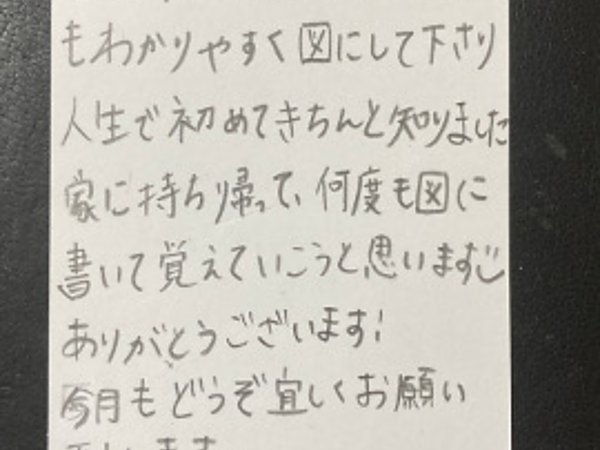 もわかりやすく図にして下さり
人生で初めてきちんと知りました
家に持ち帰って、何度も図に
書いて覚えていこうと思います
ありがとうございます!
今月もどうぞ宜しくお願い
します